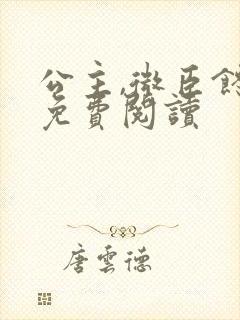 公主,微臣
免費閱讀
唐雲德